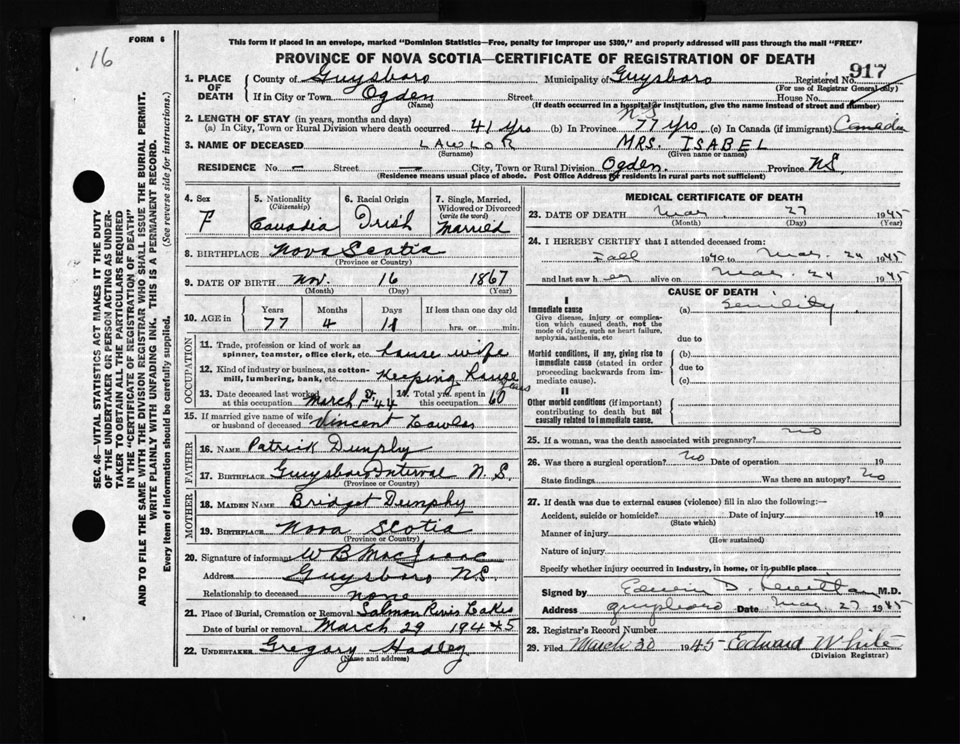 16
FORM 6
This form if placed in an envelope, marked "Dominion Statistics—Free, penalty for improper use $300," and properly addressed will pass through the mail "FREE"
PROVINCE OF NOVA SCOTIA—CERTIFICATE OF REGISTRATION OF DEATH
917
1. PLACE OF DEATH County of Guysboro Municipality of Guysboro Registered No.
(For use of Registrar General only)
If in City or Town Ogden Street House No.
(Name) (If death occurred in a hospital or institution, give the name instead of street and number)
2. LENGTH OF STAY (in years, months and days)
(a) In City, Town or Rural Division where death occurred 41 yrs (b) In Province N S 77 yrs (c) In Canada (if immigrant) Canada
3. NAME OF DECEASED LAWLOR MRS. ISABEL
(Surname) (Given name or names)
RESIDENCE No – Street – City, Town or Rural Division Ogden. Province N.S.
(Residence means usual place of abode. Post Office Address of residents in rural parts not sufficient)
4. Sex F
5. Nationality (Citizenship) Canadia
6. Racial Origin Irish
7. Single, Married, Widowed or Divorced (write the word) Married
8. BIRTHPLACE Nova Scotia
(Province or Country)
9. DATE OF BIRTH Nov. 16 1867
(Month) (Day) (Year)
10. AGE in Years 77 Months 4 Days 11 If less than one day old hrs. or min.
OCCUPATION
11. Trade, profession or kind of work as spinner, teamster, office clerk, etc. house wife
12. Kind of industry or business, as cotton-mill, lumbering, bank, etc. Keeping House
13. Date deceased last worked at this occupation March 1st 44 14. Total yrs. spent in this occupation 60
15. If married give name of wife or husband of deceased Vincent Lawlor
FATHER
16. NAME Patrick Dunphy
17. BIRTHPLACE Guysboro Interval N.S.
(Province or Country)
MOTHER
18. MAIDEN NAME Bridget Dunphy
19. BIRTHPLACE Nova Scotia
(Province or Country)
20. Signature of informant W B MacIsaac
Address Guysboro N.S.
Relationship to deceased none
21. Place of Burial, Cremation or Removal Salmon River Lakes
Date of burial or removal March 29 1945
22. UNDERTAKER Gregory Hadley
(Name and address)
MEDICAL CERTIFICATE OF DEATH
23. DATE OF DEATH Mar. 27 1945
(Month) (Day) (Year)
24. I HEREBY CERTIFY that I attended deceased from:
Fall 1940 to Mar. 24 1945
and last saw her alive on Mar. 24 1945
CAUSE OF DEATH
I
Immediate cause (a) Senility.
Give disease, injury or complication which caused death, not the mode of dying, such as heart failure, asphyxia, asthenia, etc
due to
Morbid conditions, if any, giving rise to immediate cause (stated in order proceeding backwards from immediate cause)
(b)
due to
(c)
II
Other morbid conditions (if important) contributing to death but not causally related to immediate cause.
25. If a woman, was the death associated with pregnancy? no
26. Was there a surgical operation? No Date of operation 19
State findings Was there an autopsy? No
27. If death was due to external causes (violence) fill in also the following:—
Accident, suicide or homicide? Date of injury 19
(State which)
Manner of injury
(How sustained)
Nature of injury
Specify whether injury occurred in industry, in home, or in public place
Signed by Edwin D. M.D.
Address Guysboro Date Mar. 27 1945
28. Registrar's Record Number
29. Filed March 30 1945 Edward White
(Division Registrar)
SEC. 46—VITAL STATISTICS ACT MAKES IT THE DUTY
OF THE UNDERTAKER OR PERSON ACTING AS UNDER-
TAKER TO OBTAIN ALL THE PARTICULARS REQUIRED
IN THE "CERTIFICATE OF REGISTRATION OF DEATH"
AND TO FILE THE SAME WITH THE DIVISION REGISTRAR WHO SHALL ISSUE THE BURIAL PERMIT.
WRITE PLAINLY WITH UNFADING INK. THIS IS A PERMANENT RECORD.
Every item of information should be carefully supplied. (See reverse side for instructions.)